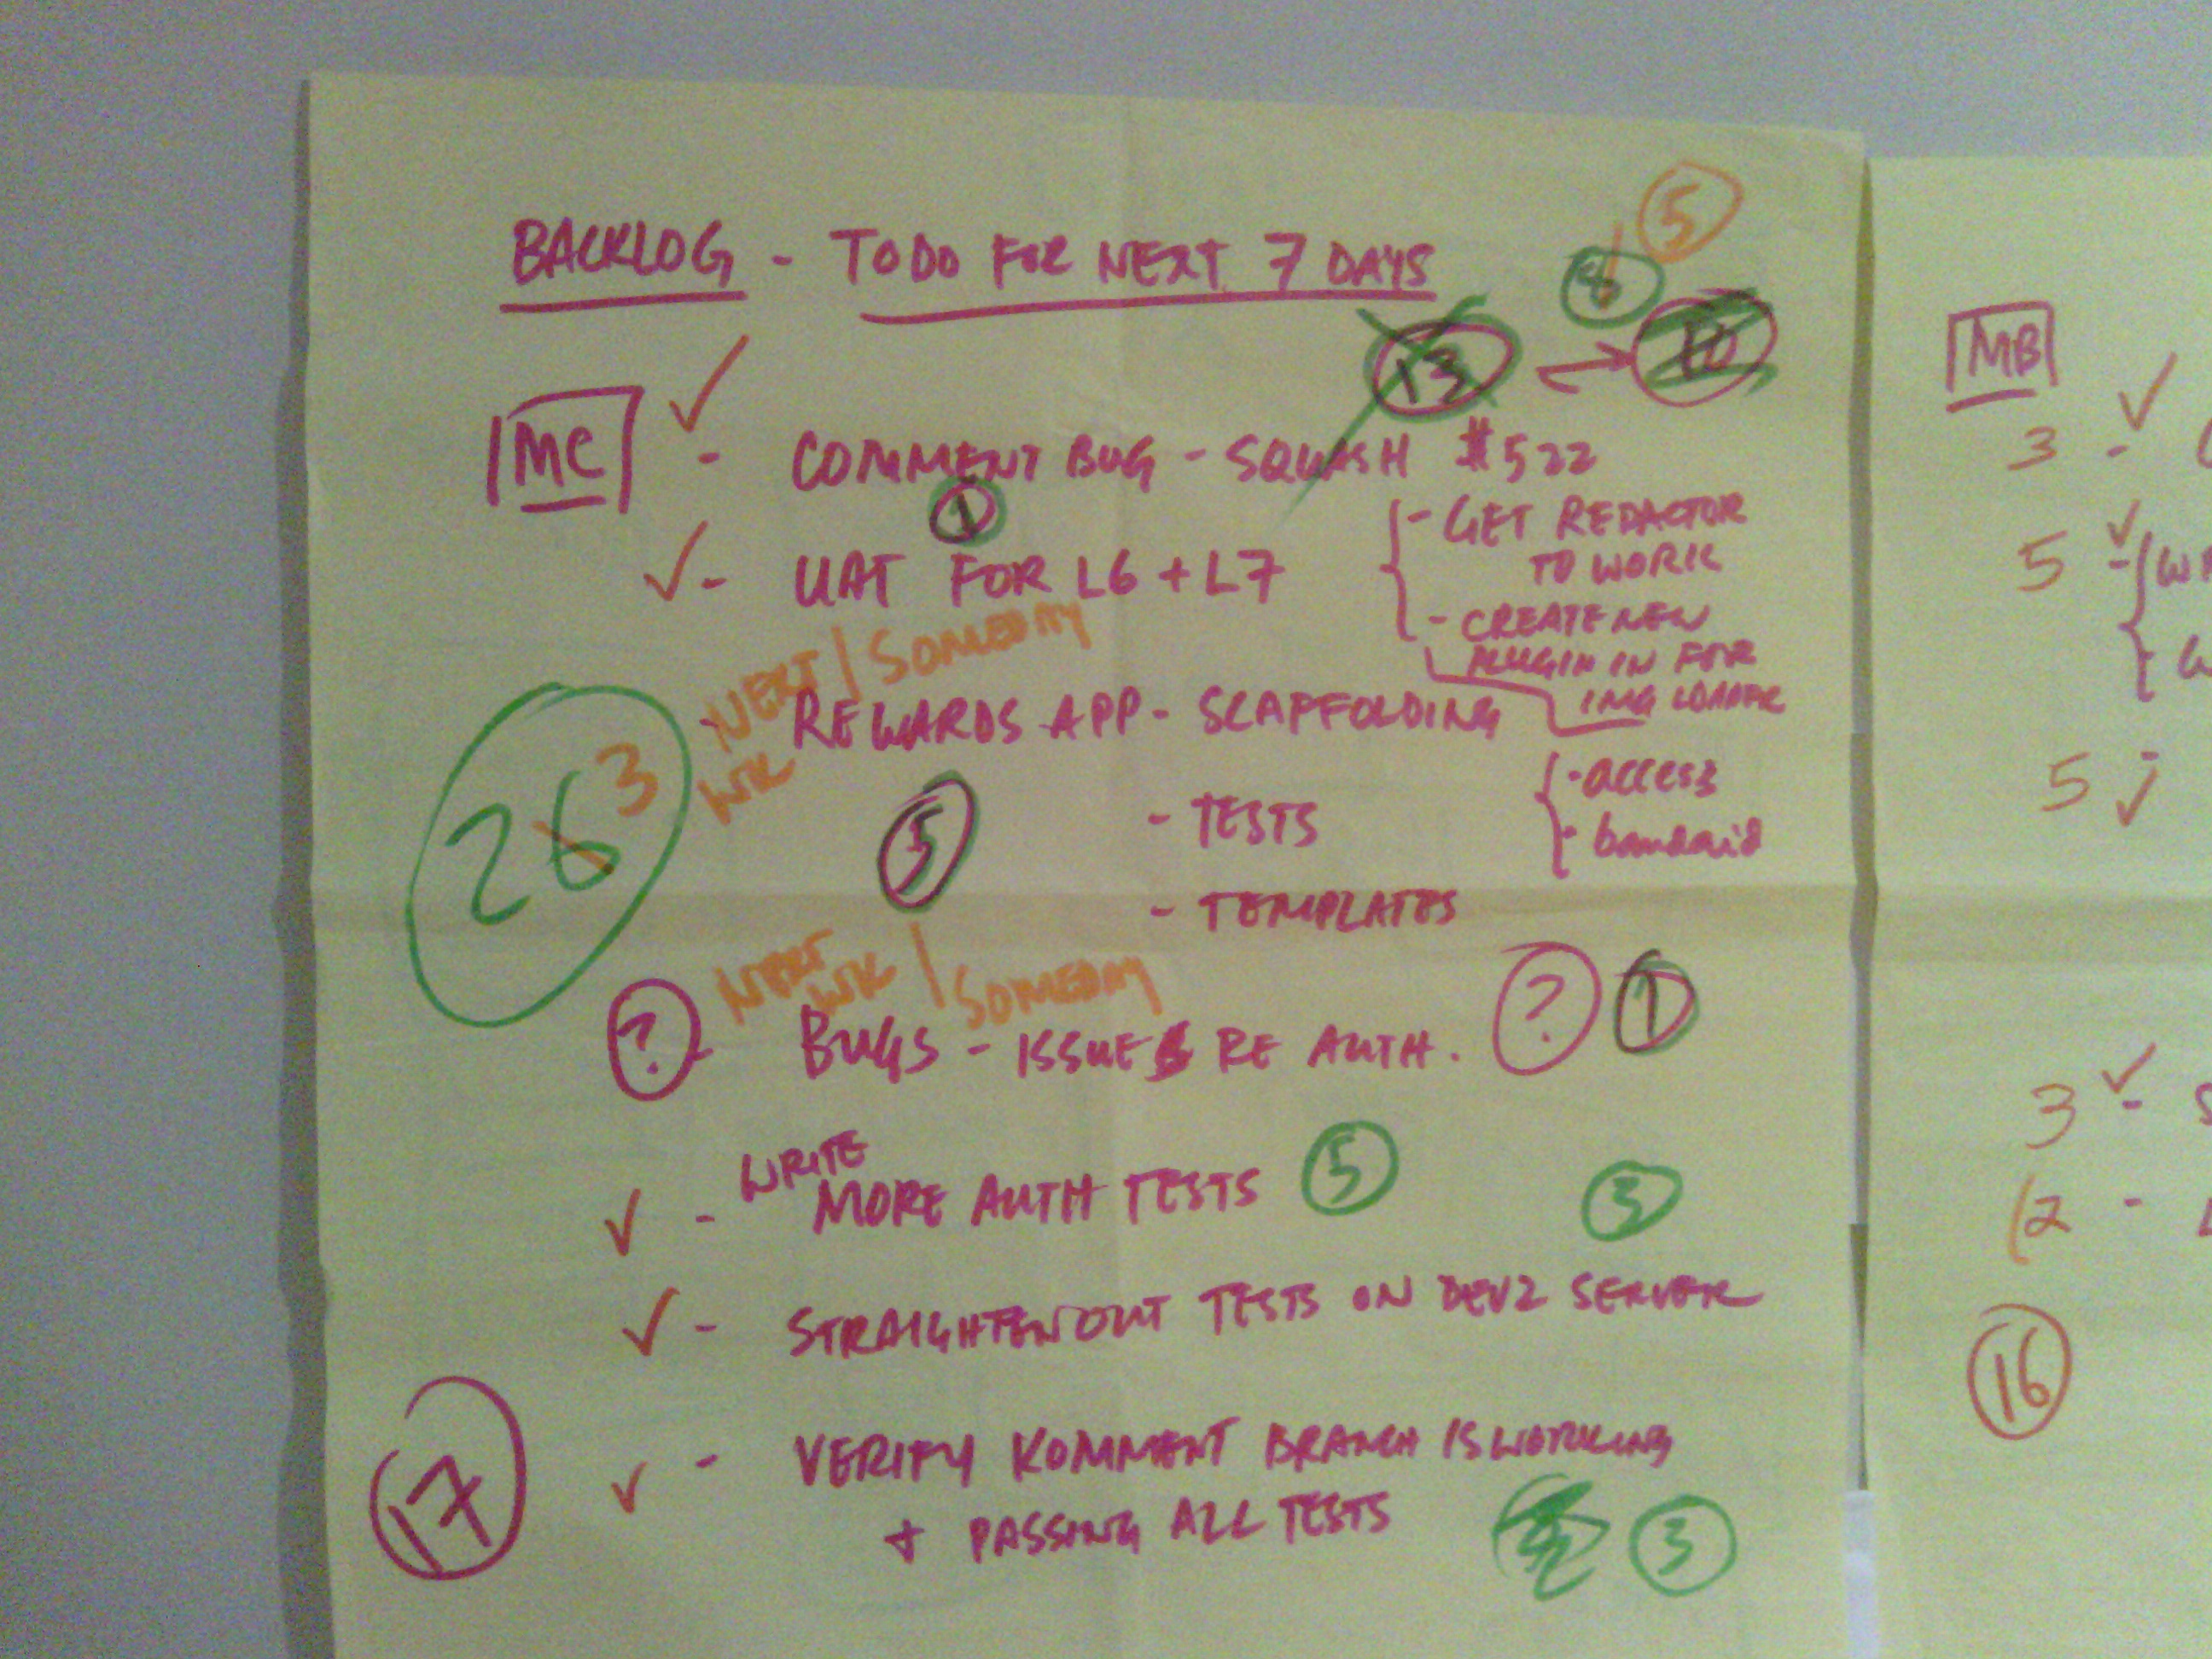 BACKLOG - TODO FOR NEXT 7 DAYS
5
8
13 → 10
MC
✓ - COMMENT BUG - SQUASH #522
1
- GET REDACTOR
TO WORK
- CREATE NEW
PLUGIN IN FOR
IMG LOADER
✓ - UAT FOR L6 + L7
NEXT WK | SOMEDAY
- REWARDS APP - SCAFFOLDING
263
5
- TESTS
- TEMPLATES
- access
- bandaid
NEXT WK | SOMEDAY
? - BUGS - ISSUES RE AUTH. ? 1
✓ - WRITE MORE AUTH TESTS 5
3
✓ - STRAIGHTEN OUT TESTS ON DEV2 SERVER
17
✓ - VERIFY KOMMENT BRANCH IS WORKING
+ PASSING ALL TESTS 3
MB
3 ✓ -
5 ✓ -
5 ✓ -
3 ✓ -
(2 -
16